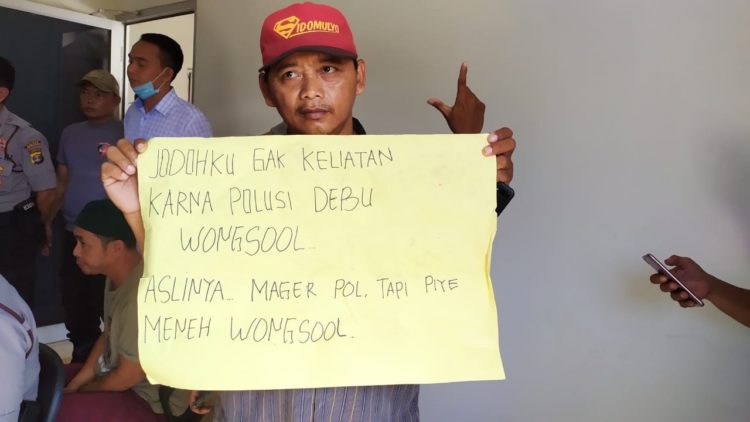 SIDOMULYO
JODOHKU GAK KELIATAN
KARNA POLUSI DEBU
WONGSOOL..
ASLINYA... MAGER POL, TAPI PIYE
MENEH WONGSOOL.